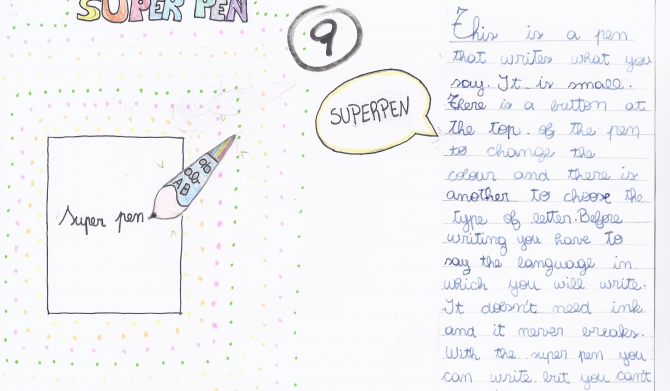 SUPER PEN
9
SUPERPEN
Super pen
AB
This is a pen
that writes what you
say. It is small.
There is a button at
the top of the pen
to change the
colour and there is
another to choose the
type of letter. Before
writing you have to
say the language in
which you will write.
It doesn't need ink
and it never breaks.
With the super pen you
can write but you can't